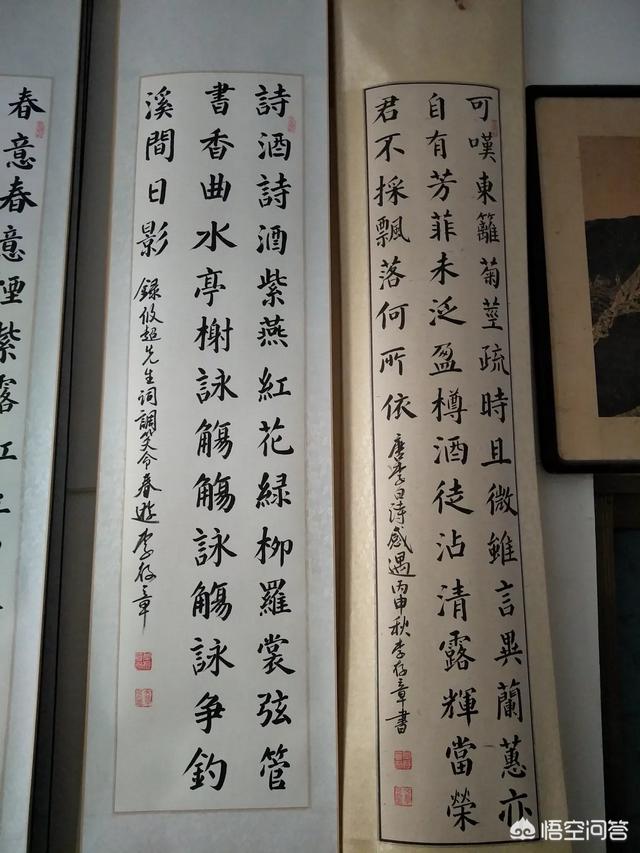 可嘆東籬菊莖疏時且微雖言異蘭蕙亦
自有芳菲未泛盈樽酒徒沾清露輝當榮
君不採飄落何所依
唐李白詩感遇丙申秋李存章書
詩酒詩酒紫燕紅花緑柳羅裳弦管
書香曲水亭榭詠觴觴詠觴詠争釣
溪間日影
録攸超先生詞調笑令春遊李存章
春意春意紫露
悟空问答